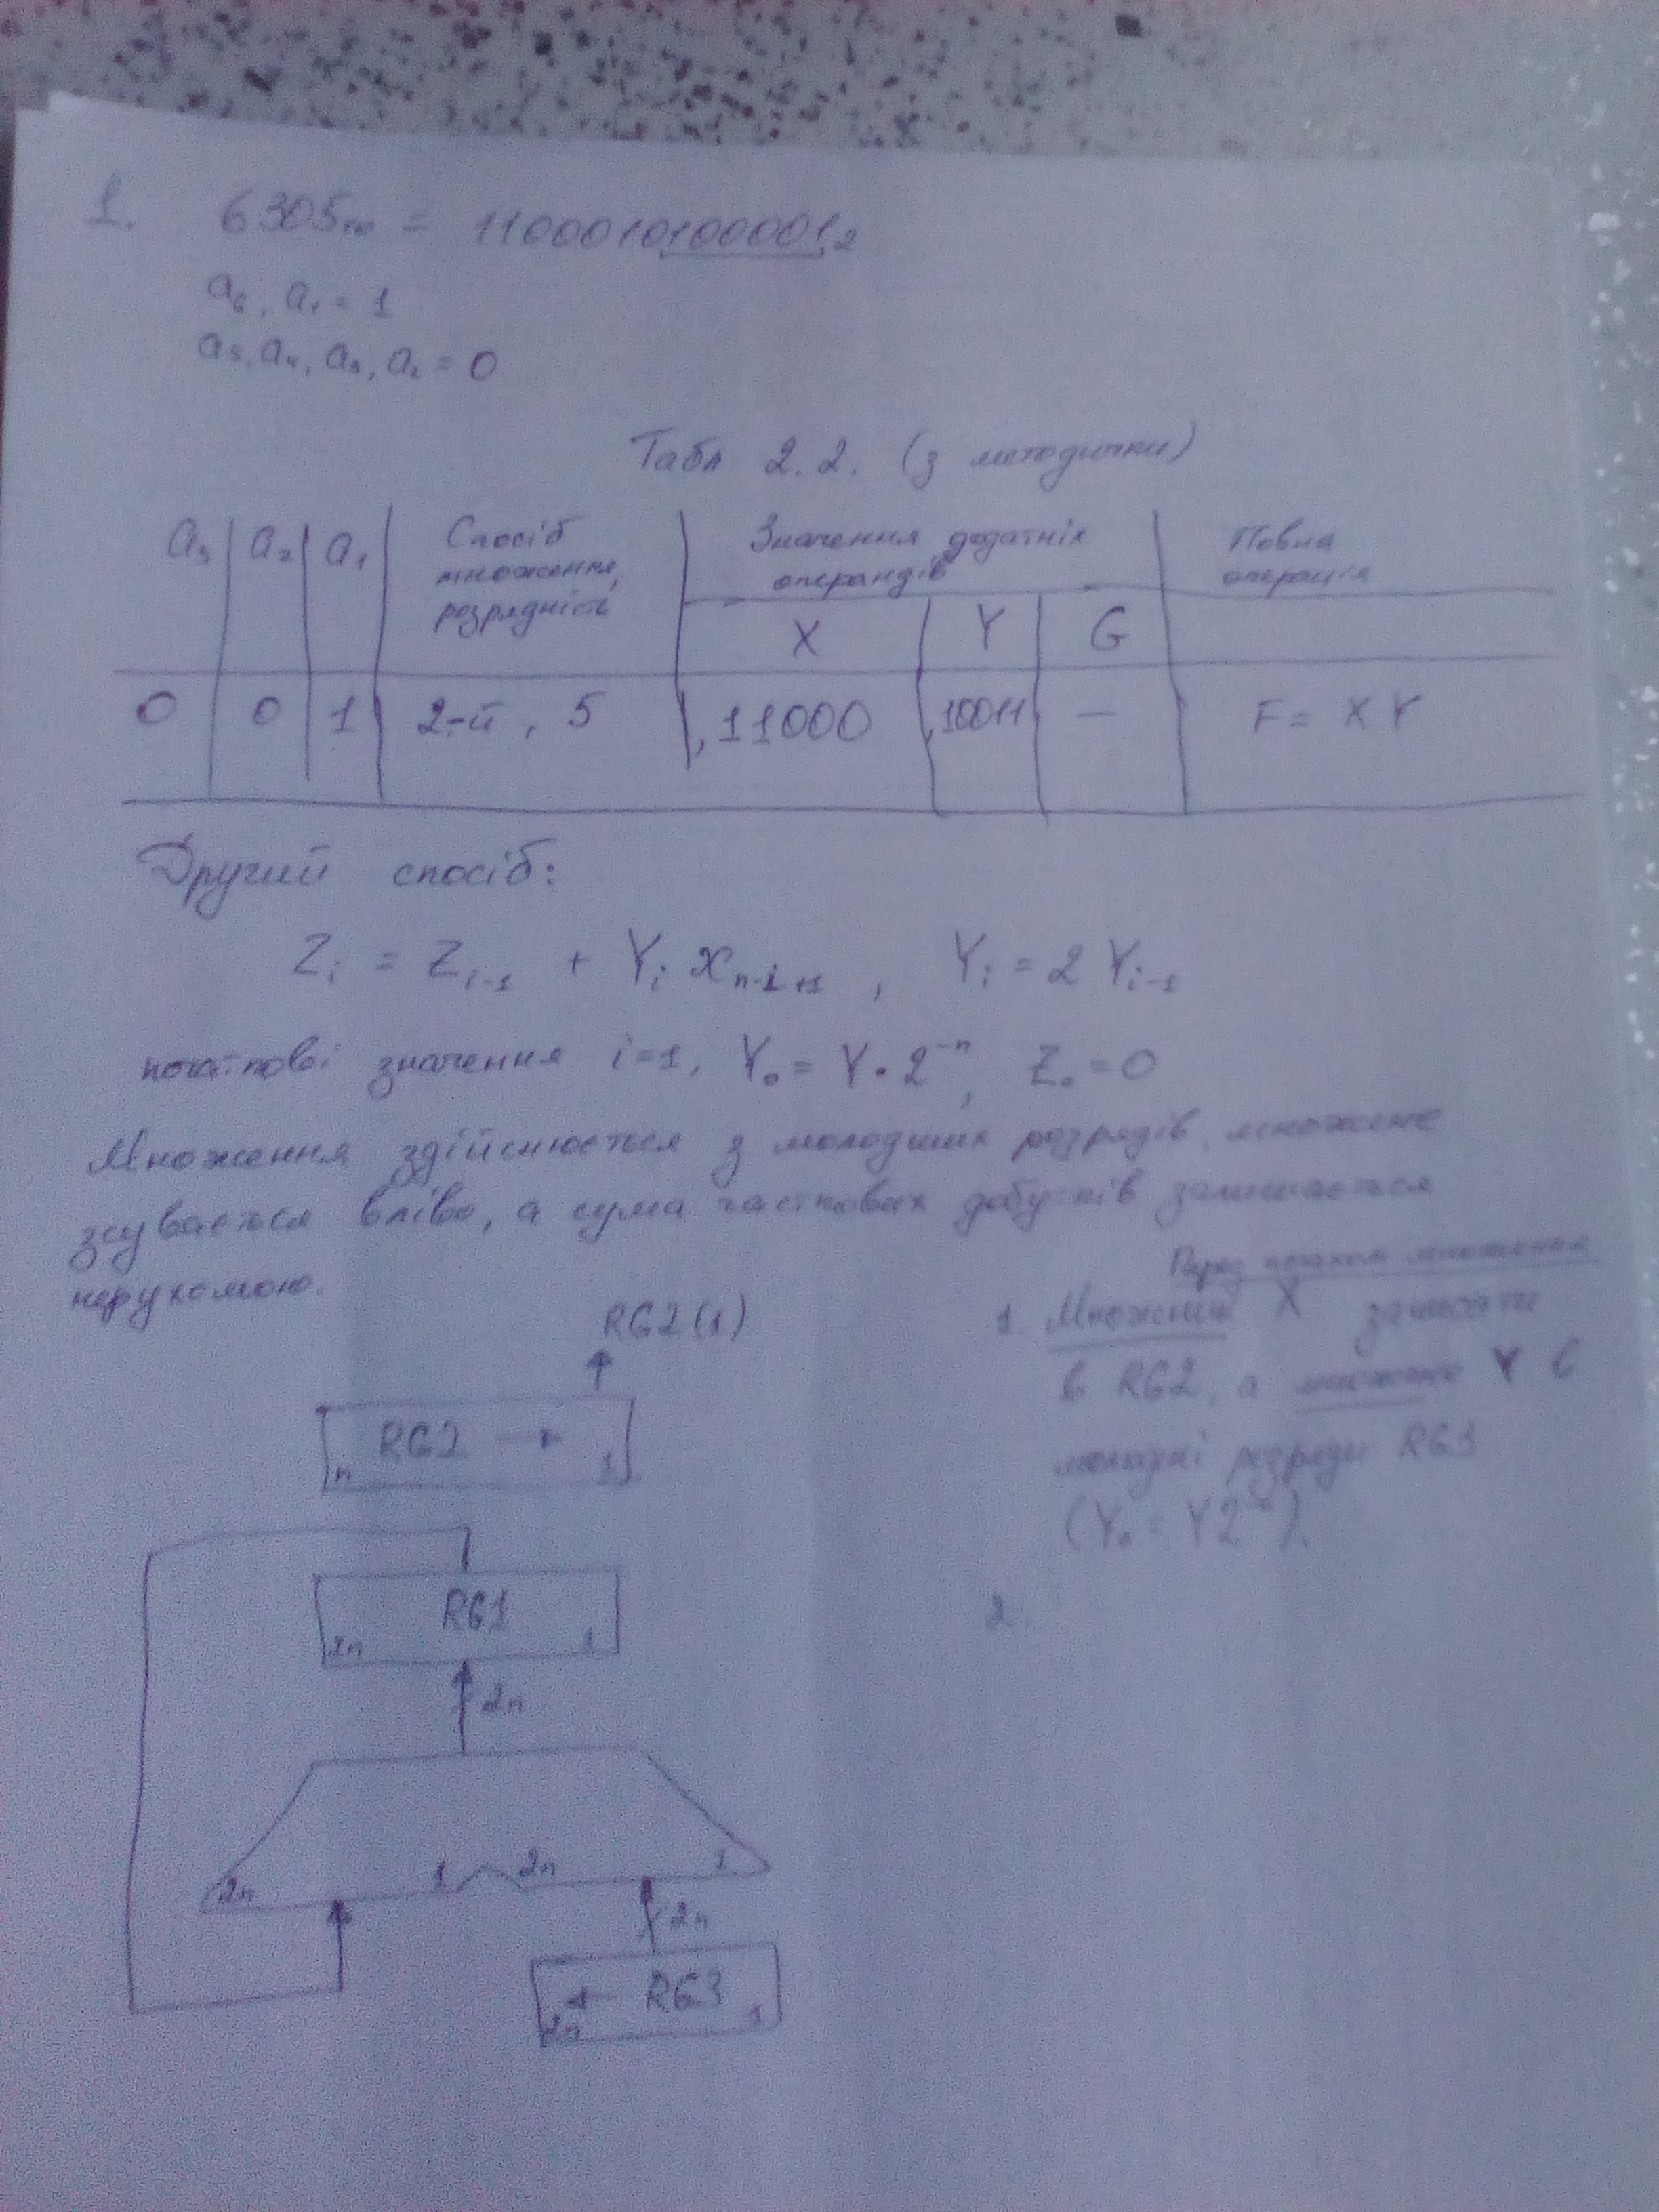 1. 6305₁₀ = 1100010100001₂
a₆, a₁ = 1
a₅, a₄, a₃, a₂ = 0
Табл 2.2. (з методички)
a₃ a₂ a₁ Спосіб множення, розрядність Значення додатніх операндів Повна операція
X Y G
0 0 1 2-й, 5 ,11000 ,10011 — F = X Y
Другий спосіб:
Zᵢ = Zᵢ₋₁ + Yᵢ xₙ₋ᵢ₊₁ , Yᵢ = 2 Yᵢ₋₁
початкові значення i=1, Y₀ = Y · 2⁻ⁿ, Z₀ = 0
Множення здійснюється з молодших розрядів, множене
зсувається вліво, а сума часткових добутків залишається
нерухомою.
Перед початком множення
RG2(1)
1. Множник X записати
в RG2, а множене Y в
молодші розряди RG3
(Y₀ = Y2⁻ⁿ).
2
RG2 →
n 1
RG1
2n 1
2n
2n 1 2n 1
2n
← RG3
2n 1